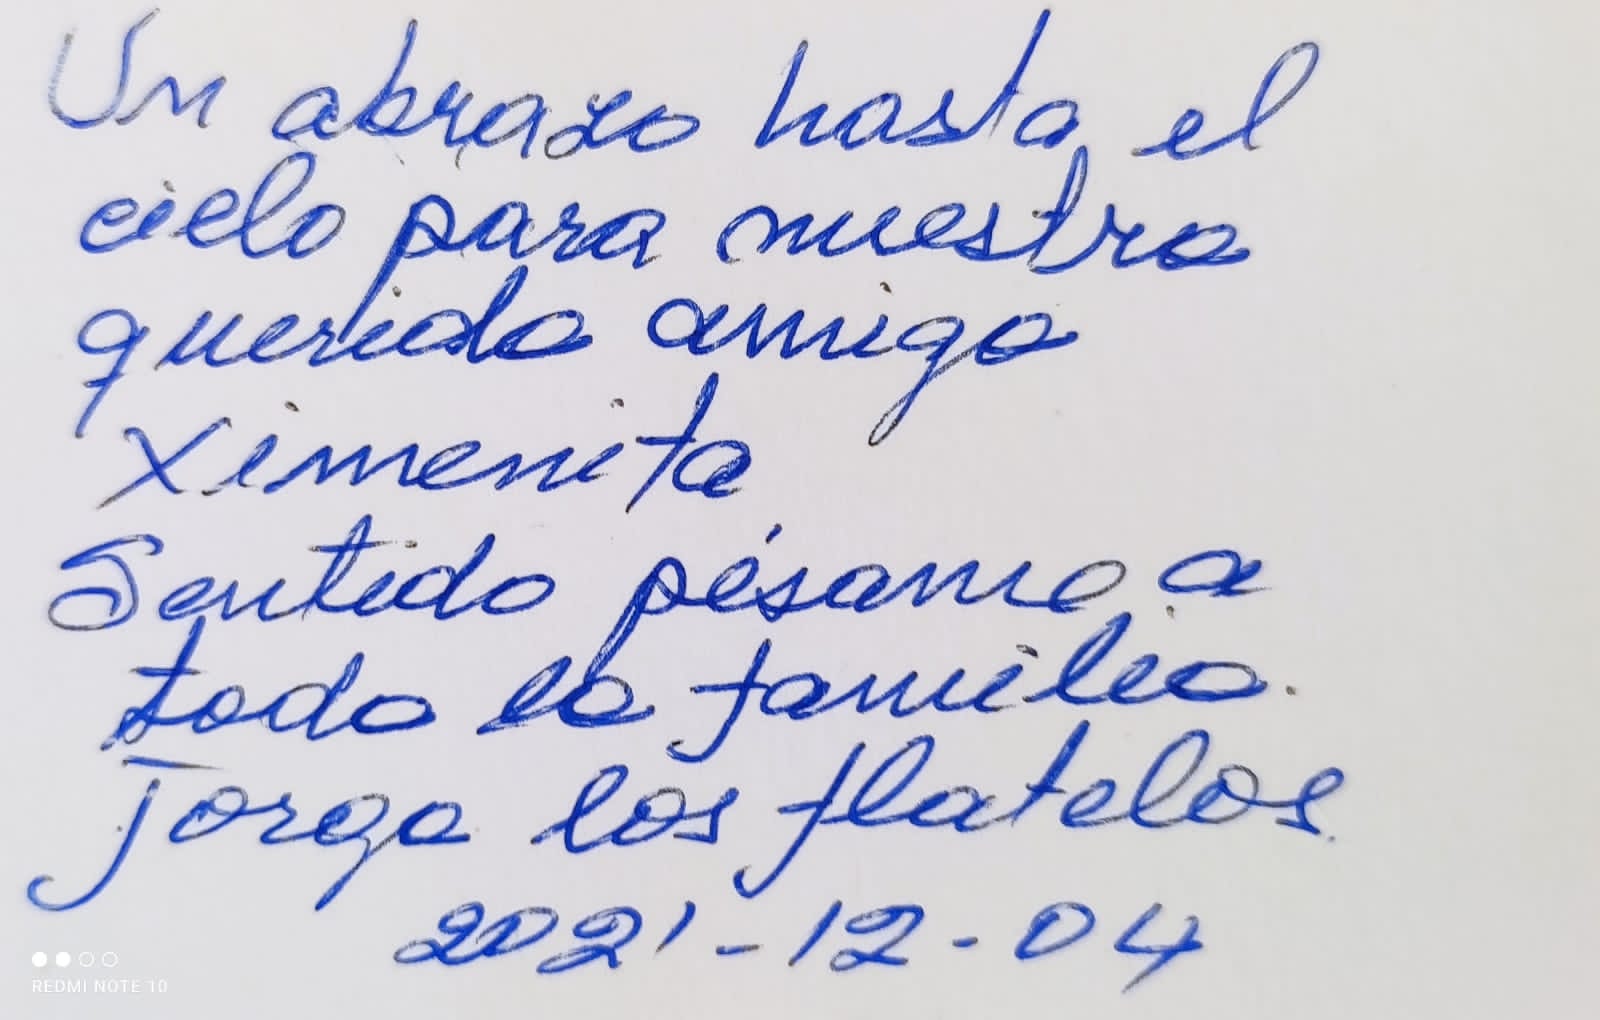 Un abrazo hasta el
cielo para nuestra
querida amiga
Ximenita
Sentido pésame a
toda la familia.
Jorge los flatelos.
2021-12-04
REDMI NOTE 10